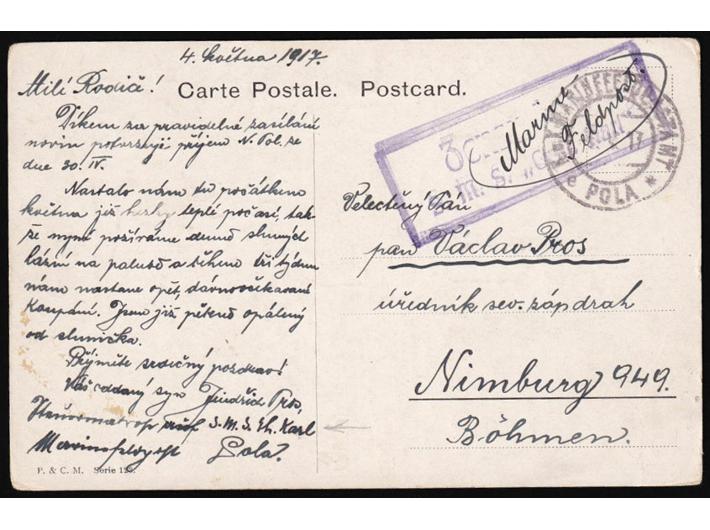 4. května 1917.
Milí Rodiče!
Carte Postale. Postcard.
Marine
Feldpost
MARINEFELDPOSTAMT
e POLA *
Díkem za pravidelné zasílání
novin potvrzuji příjem N. Pol. ze
dne 30. IV.
Nastalo nám tu počátkem
května již hezky teplé počasí, tak
že nyní požíváme denně slunných
lázní na palubě a během
nám nastane opět, dlouhoočekávané
koupání. Jsem již pěkně opálený
od sluníčka.
Přijměte srdečný pozdrav!
Váš oddaný syn Jindřich Pros,
S.M.S. Eh. Karl
Marinefeldpost Pola.
Velectěný Pán
pan Václav Pros
úředník sev. záp. drah
Nimburg 949.
Böhmen.
P. & C. M. Serie